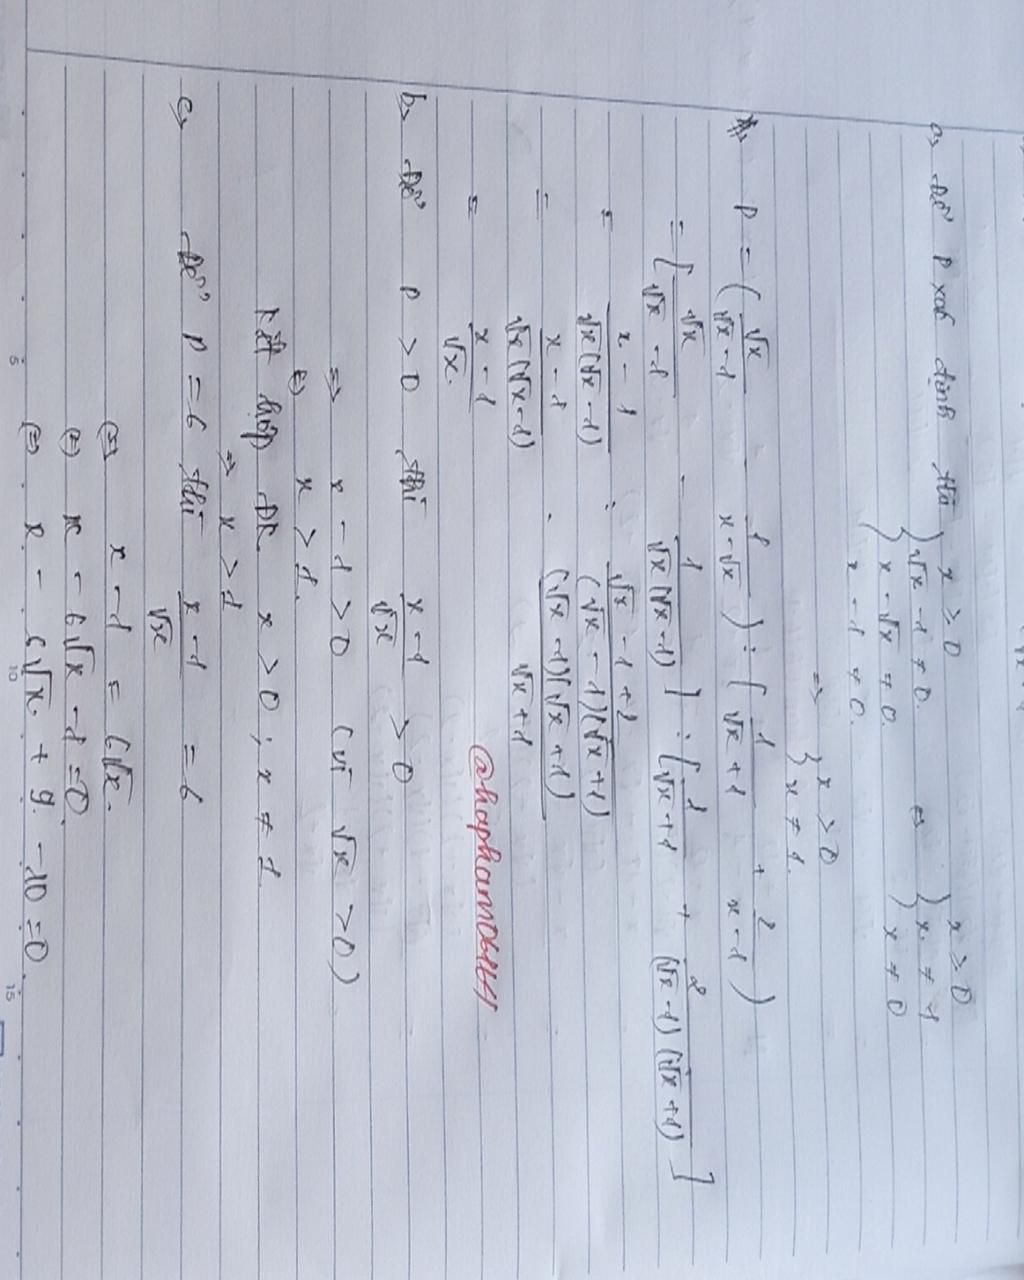 a, Để P xác định thì { x ≥ 0
√x - 1 ≠ 0
x - √x ≠ 0
x - 1 ≠ 0
⇔ { x ≥ 0
x ≠ 1
x ≠ 0
⇒ { x > 0
x ≠ 1
P = ( √x / (√x - 1) - 1 / (x - √x) ) : ( 1 / (√x + 1) + 2 / (x - 1) )
= [ √x / (√x - 1) - 1 / (√x (√x - 1)) ] : [ 1 / (√x + 1) + 2 / ((√x - 1) (√x + 1)) ]
= (x - 1) / (√x (√x - 1)) : (√x - 1 + 2) / ((√x - 1)(√x + 1))
= (x - 1) / (√x (√x - 1)) . ((√x - 1)(√x + 1)) / (√x + 1)
= (x - 1) / √x.
@hapham0641
b, Để P > 0 thì (x - 1) / √x > 0
⇒ x - 1 > 0 (vì √x > 0)
⇔ x > 1.
Kết hợp ĐK x > 0 ; x ≠ 1
⇒ x > 1
c, Để P = 6 thì (x - 1) / √x = 6
⇔ x - 1 = 6√x.
⇔ x - 6√x - 1 = 0
⇔ x - 6√x + 9 - 10 = 0
5
10
15